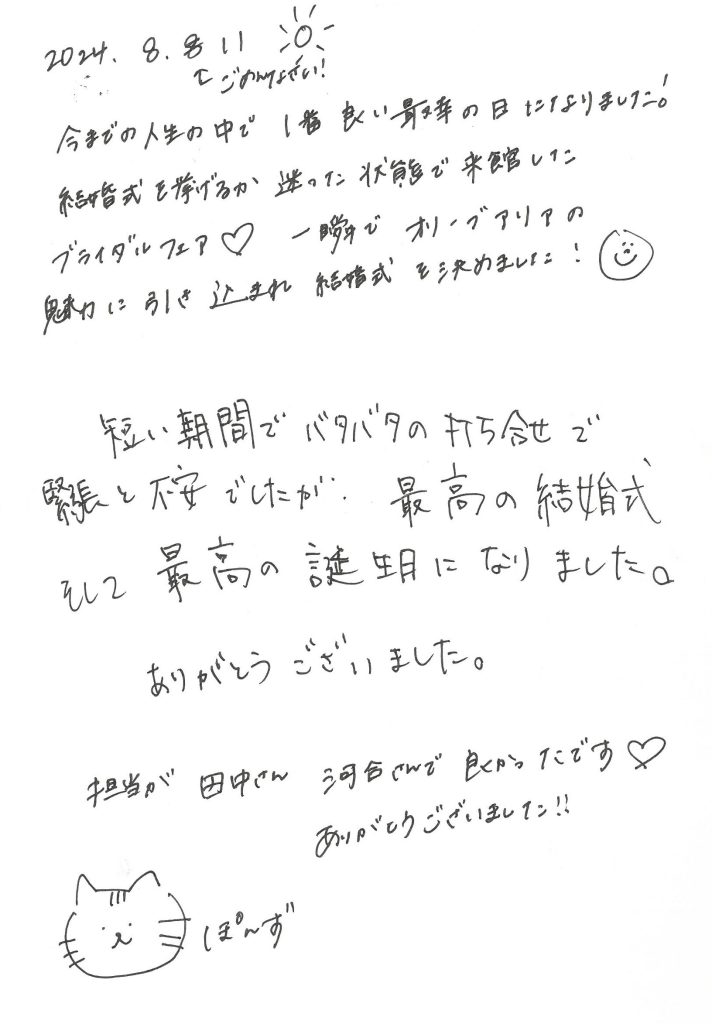 2024. 8. 8 11
↑ごめんなさい!
今までの人生の中で 1番 良い最幸の日になりました!
結婚式を挙げるか 迷った 状態で 来館した
ブライダルフェア♡ 一瞬で オリーブアリアの
魅力に引き込まれ 結婚式を決めました!
短い期間でバタバタの打ち合せで
緊張と不安でしたが、最高の結婚式
そして最高の誕生日になりました。
ありがとうございました。
担当が 田中さん 河合さんで 良かったです♡
ありがとうございました!!
ぽんず